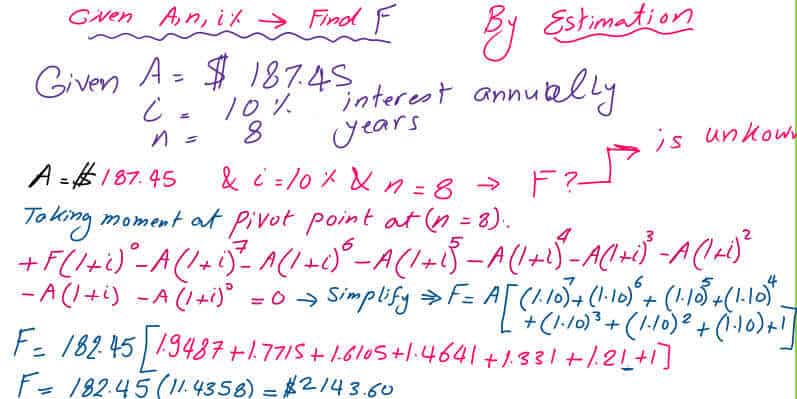 Given A,n,i% → Find F By Estimation
Given A = $ 187.45
i = 10 % interest annually
n = 8 years
A = $ 187.45 & i = 10 % & n = 8 → F? is unkow
Taking moment at pivot point at (n = 8).
+ F(1+i)⁰ - A(1+i)⁷ - A(1+i)⁶ - A(1+i)⁵ - A(1+i)⁴ - A(1+i)³ - A(1+i)²
- A(1+i) - A(1+i)⁰ = 0 → Simplify ⇒ F = A[(1.10)⁷ + (1.10)⁶ + (1.10)⁵ + (1.10)⁴
+ (1.10)³ + (1.10)² + (1.10) + 1]
F = 182.45 [1.9487 + 1.7715 + 1.6105 + 1.4641 + 1.331 + 1.21 + 1]
F = 182.45 (11.4358) = $2143.60